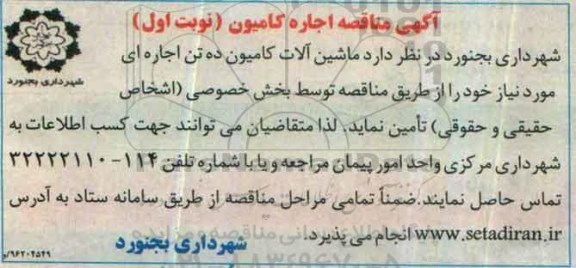 آگهی مناقصه اجاره کامیون (نوبت اول)
شهرداری بجنورد
شهرداری بجنورد در نظر دارد ماشین آلات کامیون ده تن اجاره ای
مورد نیاز خود را از طریق مناقصه توسط بخش خصوصی (اشخاص
حقیقی و حقوقی) تأمین نماید. لذا متقاضیان می توانند جهت کسب اطلاعات به
شهرداری مرکزی واحد امور پیمان مراجعه و یا با شماره تلفن ۱۱۴-۳۲۲۲۲۱۱۰
تماس حاصل نمایند. ضمناً تمامی مراحل مناقصه از طریق سامانه ستاد به آدرس
www.setadiran.ir انجام می پذیرد.
شهرداری بجنورد
۹۶۲۰۴۵۲۹/م